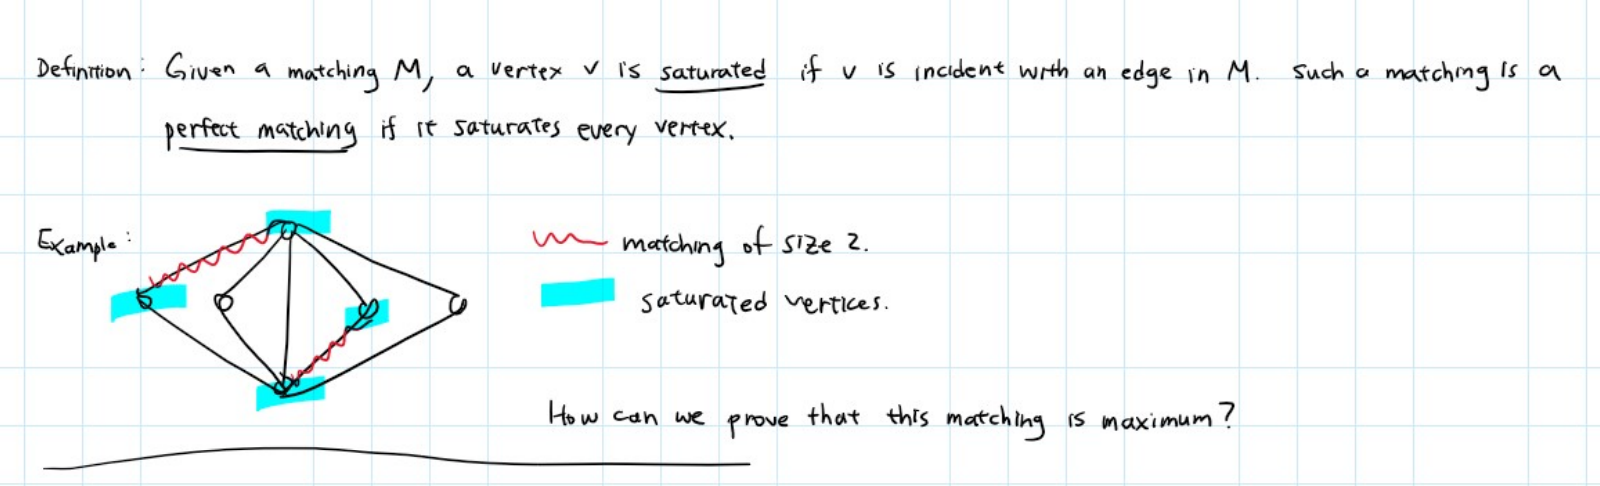 Definition: Given a matching M, a vertex v is saturated if v is incident with an edge in M. Such a matching is a
perfect matching if it saturates every vertex.
Example:
matching of size 2.
saturated vertices.
How can we prove that this matching is maximum?